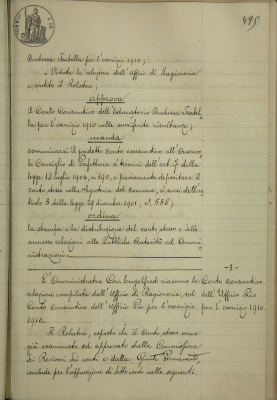 495
Duchessa Isabella per l'esercizio 1910;
Veduta la relazione dell'Ufficio di Ragioneria
e sentito il Relatore;
approva
il Conto Consuntivo dell'Educatorio Duchessa Isabel-
la per l'esercizio 1910 nelle suriferite risultanze;
manda
comunicarsi il predetto conto consuntivo all'Onorevo-
le Consiglio di Prefettura a termini dell'art. 7 della
legge 12 luglio 1904, n. 390, e parimente depositare il
conto stesso nella Segreteria del Comune, ai sensi dell'ar-
ticolo 5 della legge 29 dicembre 1901, n. 538;
ordina
la stampa e la distribuzione del conto stesso e delle
annesse relazioni alle Pubbliche Autorità ed Ammi-
nistrazioni.
L'Amministratore Cav. riassume la
relazione compilata dall'Ufficio di Ragioneria sul
Conto Consuntivo dell'Ufficio Pio per l'esercizio
1910.
Conto consuntivo
dell'Ufficio Pio
per l'esercizio 1910.
Il Relatore, esposto che il Conto stesso venne
già esaminato ed approvato dalla Commissione
dei Revisori dei conti e dalla Giunta Permanente,
conclude per l'approvazione di detto conto nelle seguenti